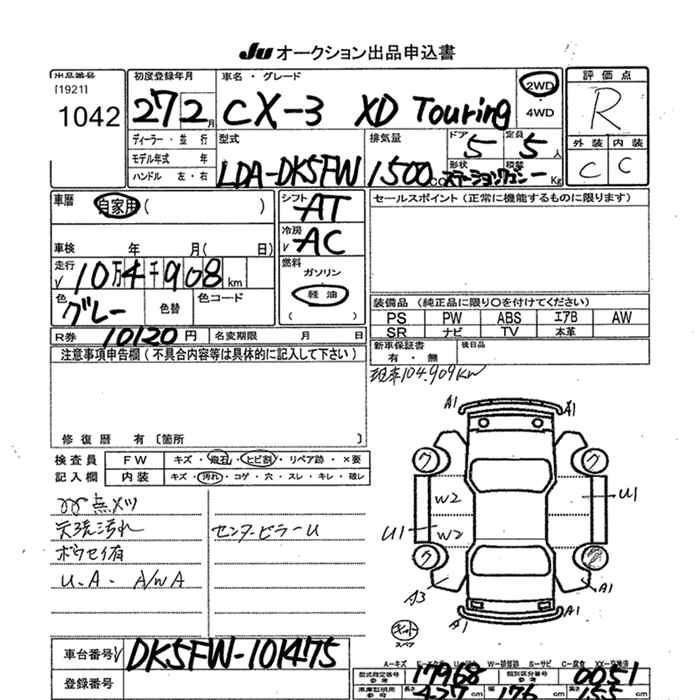 Ju オークション出品申込書
出品番号
[1921]
1042
初度登録年月
27 2月
車名・グレード
CX-3 XD Touring
2WD
4WD
評価点
R
外装 内装
C C
ディーラー・並行
モデル年式 年
ハンドル 左・右
型式
LDA-DK5FW
排気量
1500cc
ドア
5
定員
5人
形状
ステーションワゴン
積載
ーKg
車歴
自家用( )
車検 年 月( 日)
走行
√10万4千908km
色
グレー
色替
色コード
シフト
AT
冷房
√AC
燃料
ガソリン
軽油
( )
セールスポイント(正常に機能するものに限ります)
装備品(純正品に限り〇を付けてください)
PS PW ABS エアB AW
SR ナビ TV 本革
新車保証書
有・無
後日品
R券 10120円
名変期限 月 日
注意事項申告欄(不具合内容等は具体的に記入して下さい)
修復歴 有〔箇所 〕
104.909km
検査員
記入欄
FW キズ・飛石・ヒビ割・リペア跡・×要
内装 キズ・汚れ・コゲ・穴・スレ・キレ・破レ
天張汚れ
ボウセイ有
U.A. A/WA
センターピラーU
A1 A1
ク ク
W2
U1
U1
W2
ク
A3
A1
A1 A1
キット
スペア
車台番号√
DK5FW-101475
登録番号
A-キズ
W-補修跡 S-サビ C-腐食 XX-交換済
型式指定番号
参考
17968
類別区分番号
参考
0051
車庫証明用
参考
長さ
427cm
幅
176cm
高さ
155cm